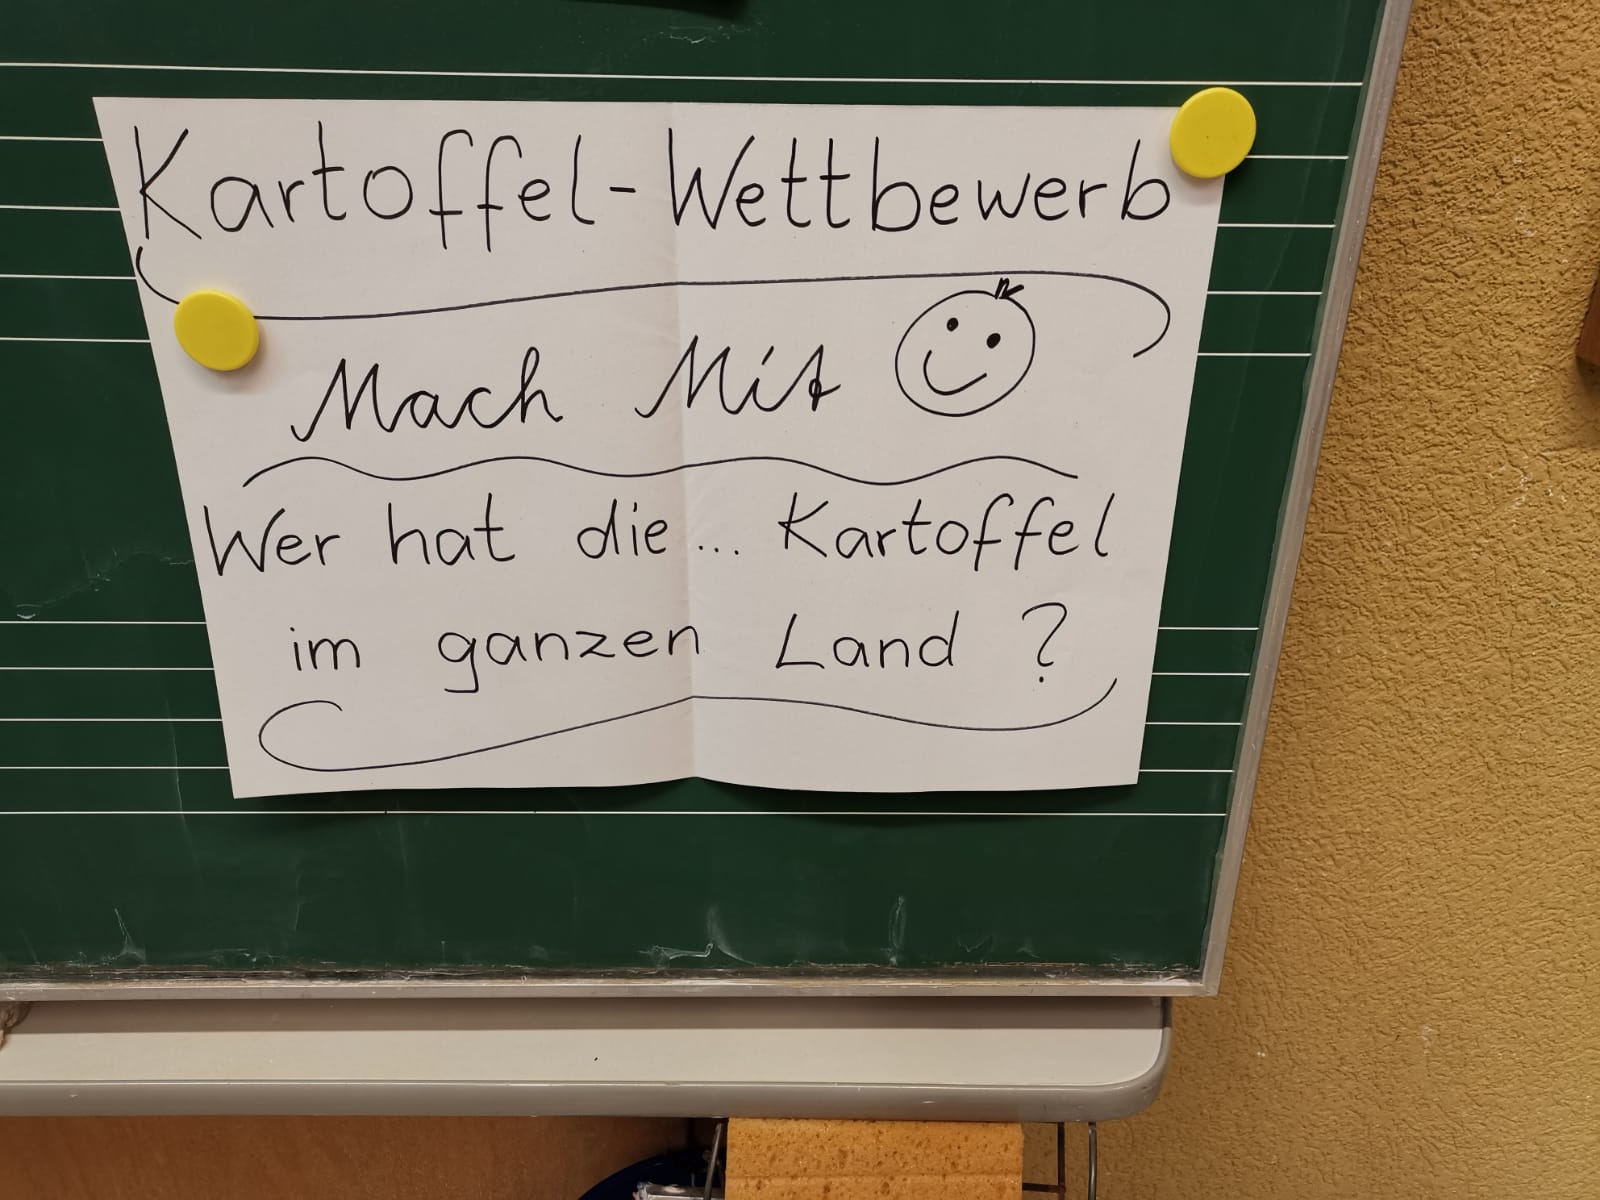 Kartoffel-Wettbewerb
Mach Mit
Wer hat die... Kartoffel
im ganzen Land ?